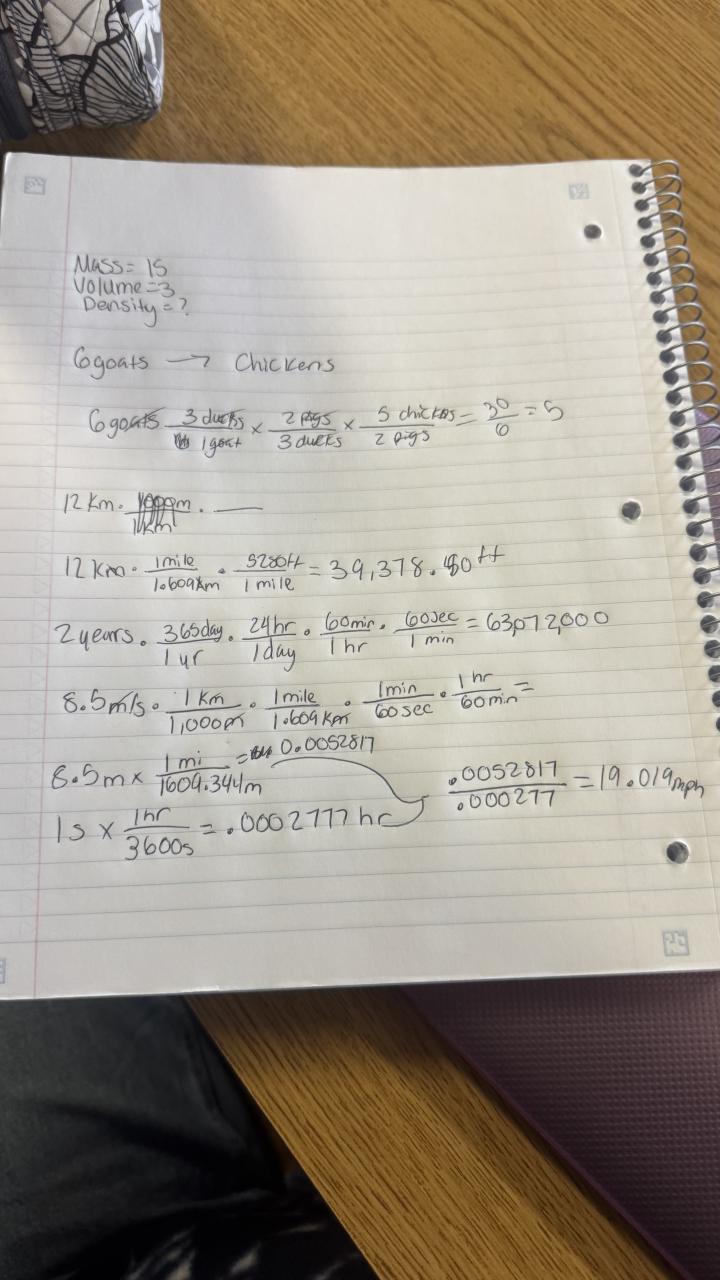 Mass= 15
Volume=3
Density=?
6goats → Chickens
6goats 3 ducks / 1 goat × 2 pigs / 3 ducks × 5 chickens / 2 pigs = 30/6 = 5
12 Km · 1000m / 1km · —
12 Km · 1mile / 1.609km · 5280ft / 1 mile = 39,378.80 ft
2 years · 365day / 1 yr · 24hr / 1day · 60min / 1 hr · 60sec / 1 min = 63,072,000
8.5m/s · 1 Km / 1,000m · 1mile / 1.609 Km · 1min / 60sec · 1 hr / 60min =
8.5m × 1 mi / 1609.344m = 0.0052817
1s × 1hr / 3600s = .0002777 hr
.0052817 / .000277 = 19.019mph